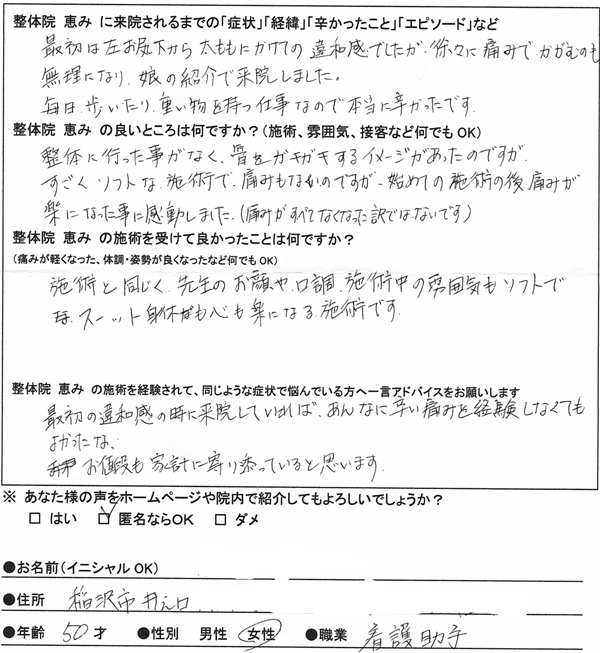 整体院 恵み に来院されるまでの「症状」「経緯」「辛かったこと」「エピソード」など
最初は左お尻下から太ももにかけての違和感でしたが、徐々に痛みで、かがむのも
無理になり、娘の紹介で来院しました。
毎日、歩いたり、重い物を持つ仕事なので本当に辛かったです。
整体院 恵み の良いところは何ですか？（施術、雰囲気、接客など何でもOK）
整体に行った事がなく、骨をガキガキするイメージがあったのですが、
すごくソフトな施術で、痛みもないのですが、始めての施術の後痛みが
楽になった事に感動しました。（痛みがすべてなくなった訳ではないです）
整体院 恵み の施術を受けて良かったことは何ですか？
（痛みが軽くなった、体調・姿勢が良くなったなど何でもOK）
施術と同じく、先生のお顔や、口調、施術中の雰囲気もソフトで
スーット身体も心も楽になる施術です。
整体院 恵み の施術を経験されて、同じような症状で悩んでいる方へ一言アドバイスをお願いします
最初の違和感の時に来院していれば、あんなに辛い痛みを経験しなくても
よかったな、
お値段も家計に寄り添っていると思います。
※ あなた様の声をホームページや院内で紹介してもよろしいでしょうか？
□ はい □ 匿名ならOK □ ダメ
●お名前（イニシャルOK）
●住所 稲沢市井之口
●年齢 50才 ●性別 男性 女性 ●職業 看護助手